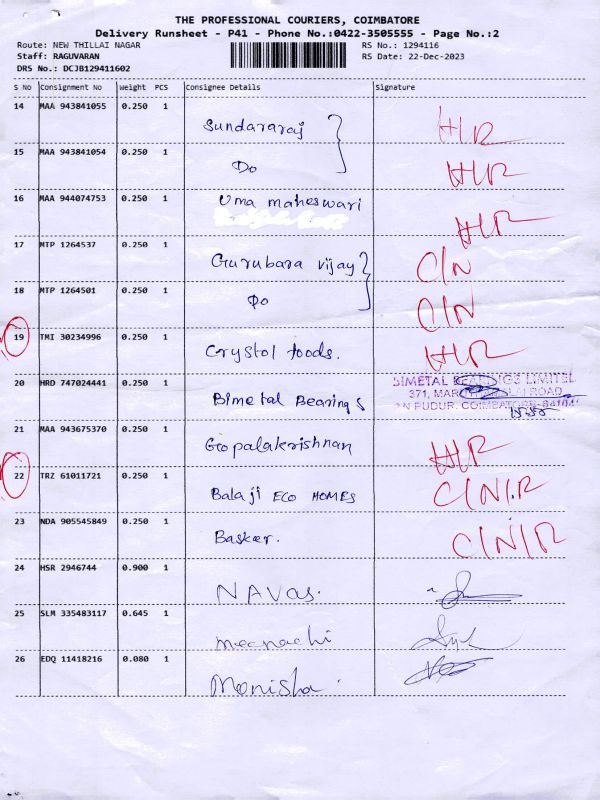 THE PROFESSIONAL COURIERS, COIMBATORE
Delivery Runsheet - P41 - Phone No.:0422-3505555 - Page No.:2
Route: NEW THILLAI NAGAR RS No.: 1294116
Staff: RAGUVARAN RS Date: 22-Dec-2023
DRS No.: DCJB129411602
S No Consignment No Weight PCS Consignee Details Signature
14 MAA 943841055 0.250 1 Sundararaj H/R
15 MAA 943841054 0.250 1 Do H/R
16 MAA 944074753 0.250 1 Uma maheswari H/R
17 MTP 1264537 0.250 1 Gurubara vijay C/N
18 MTP 1264501 0.250 1 Do C/N
19 TMI 30234996 0.250 1 Crystol foods. H/R
20 HRD 747024441 0.250 1 Bimetal Bearings
BIMETAL BEARINGS LIMITED
371, MARUTHAMALAI ROAD
PN PUDUR, COIMBATORE-641041
21 MAA 943675370 0.250 1 Gopalakrishnan H/R
22 TRZ 61011721 0.250 1 Balaji ECO HOMES C/N/R
23 NDA 905545849 0.250 1 Basker. C/N/R
24 HSR 2946744 0.900 1 NAVas.
25 SLM 335483117 0.645 1 meenachi
26 EDQ 11418216 0.080 1 Monisha.